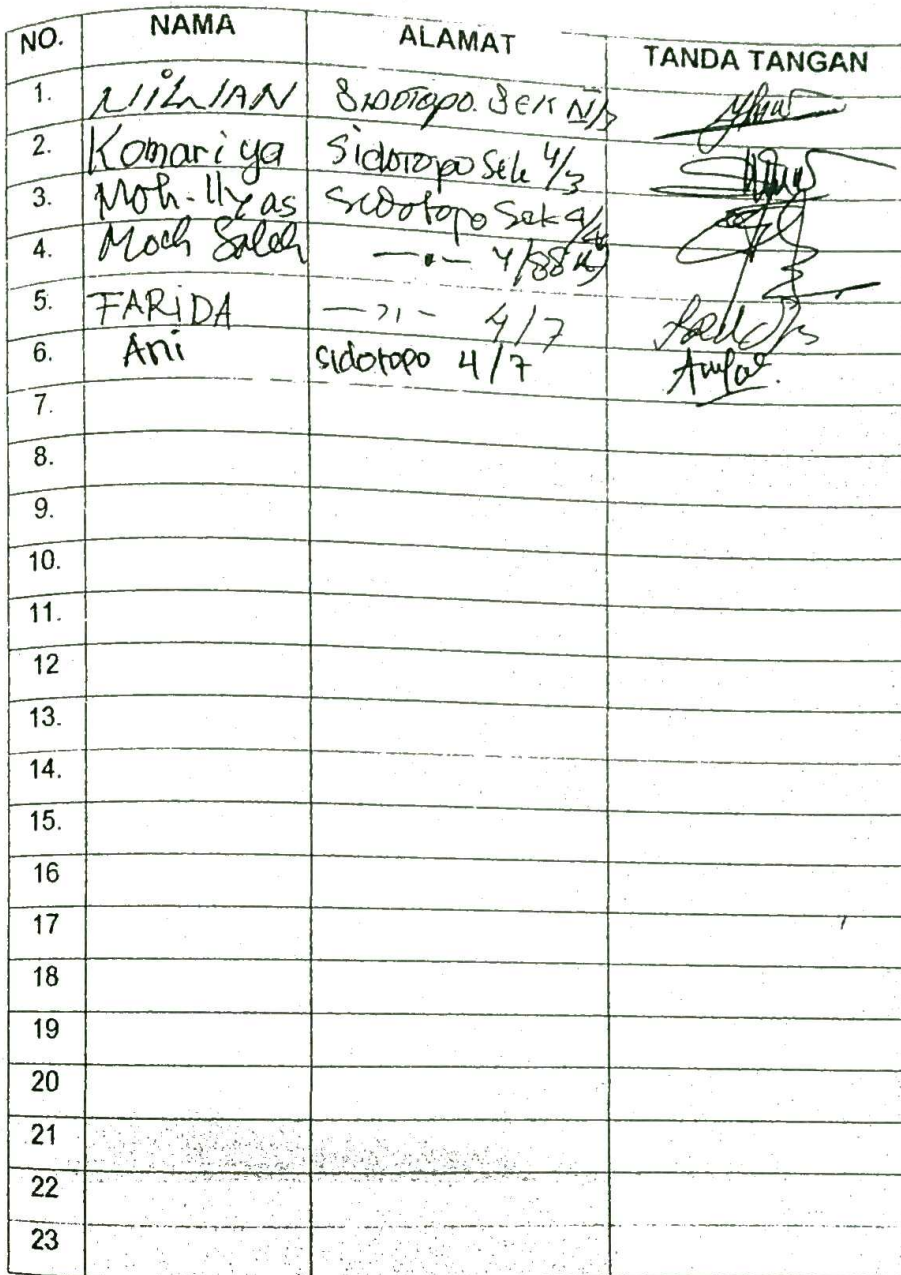 NO. NAMA ALAMAT TANDA TANGAN
1. Sidotopo. Sek
2. Komariya Sidotopo Sek 4/3
3. Moh. Ilyas Sidotopo Sek
4. Moch Saleh — " —
5. FARIDA — " — 4/7
6. Ani Sidotopo 4/7
7.
8.
9.
10.
11.
12
13.
14.
15.
16
17
18
19
20
21
22
23